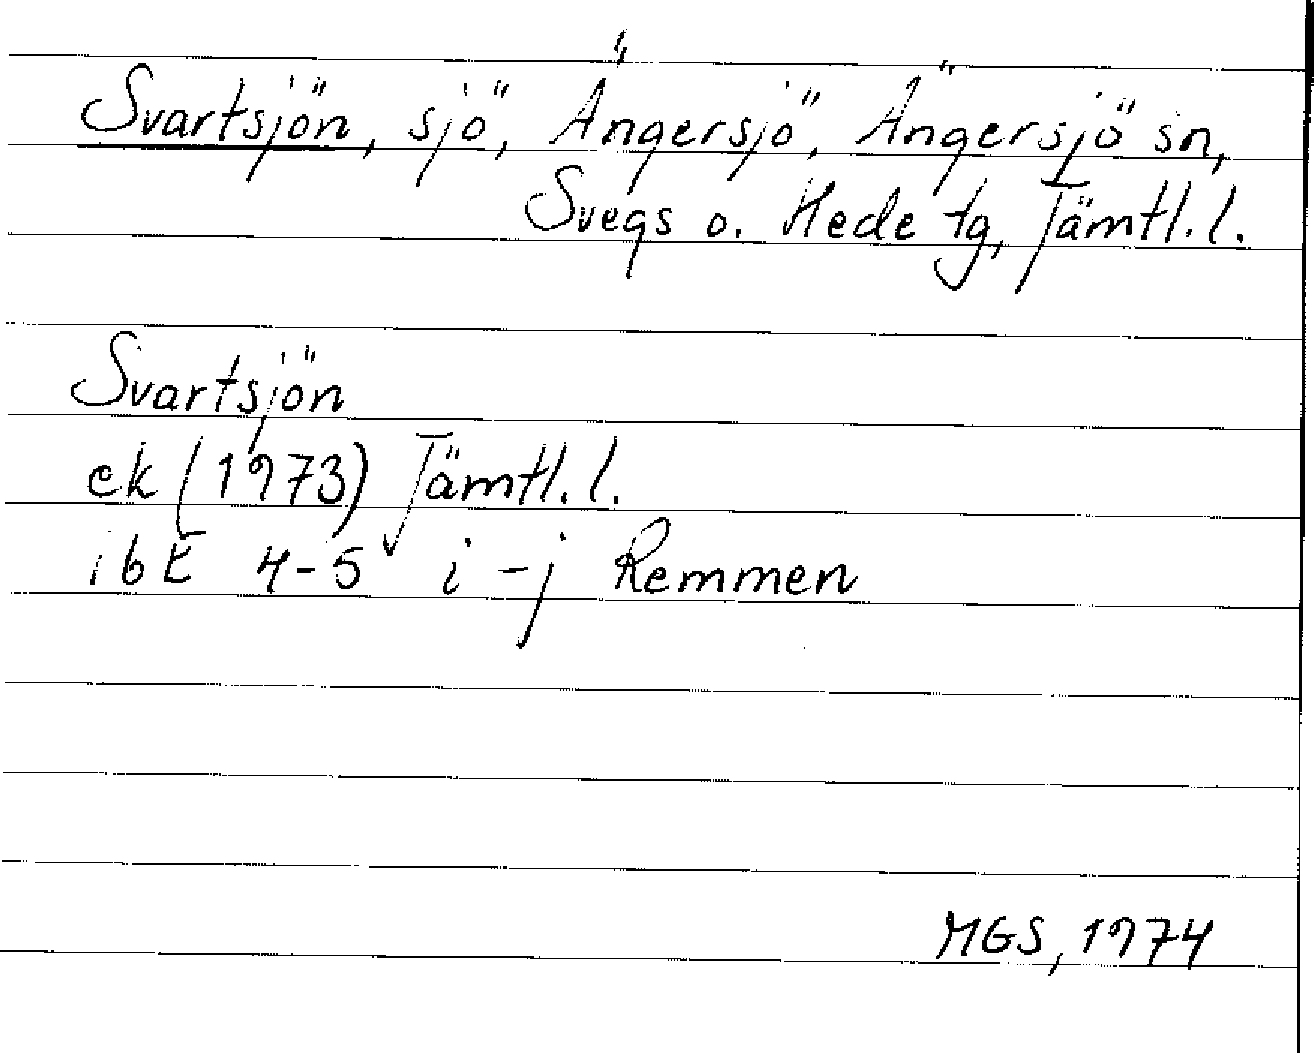 Svartsjön, sjö, Ängersjö, Ängersjö sn,
Svegs o. Hede tg, Jämtl. l.
Svartsjön
ek (1973) Jämtl. l.
16E 4-5 i-j Remmen
MGS, 1974